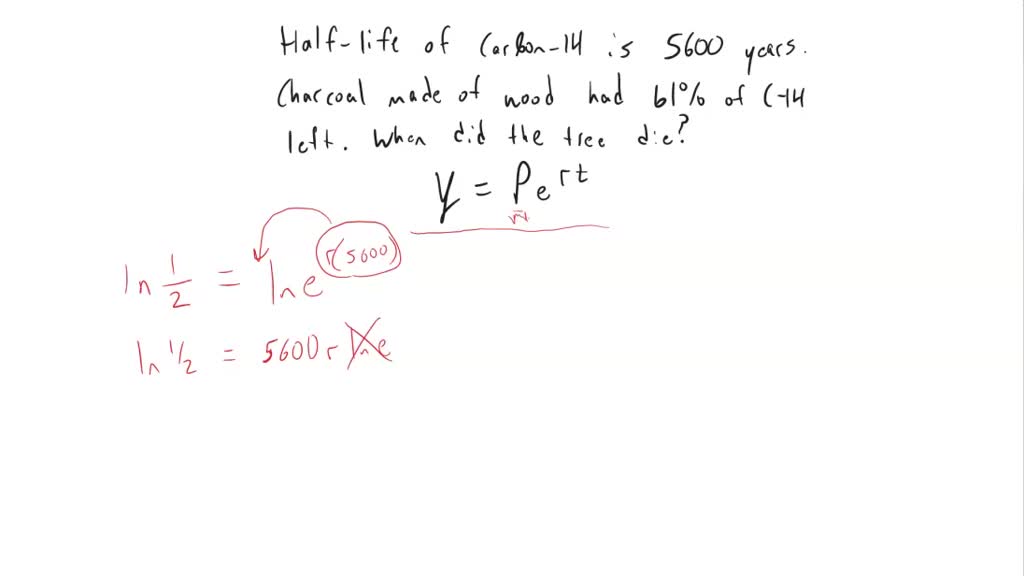 Half-life of Carbon-14 is 5600 years.
Charcoal made of wood had 61% of C-14
left. When did the tree die?
y = Pe^rt
ln 1/2 = ln e^r(5600)
ln 1/2 = 5600 r ln e